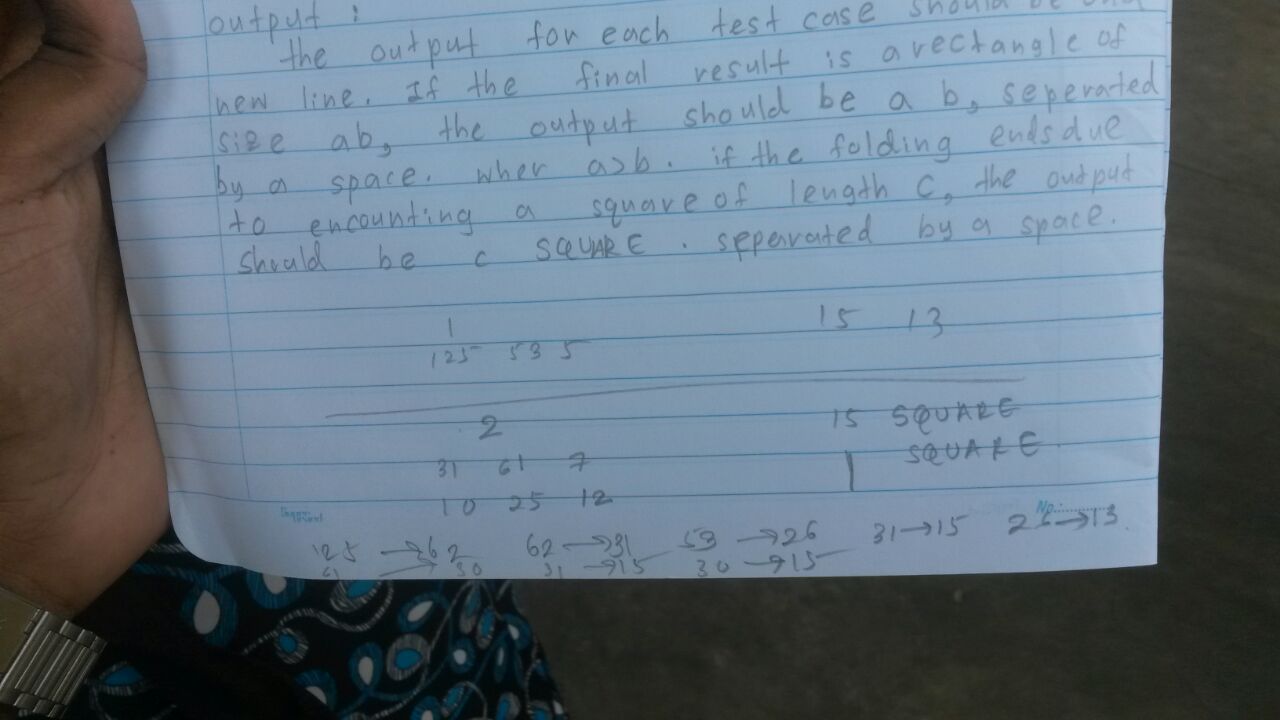 output :
the output for each test case should be
new line. If the final result is a rectangle of
size ab, the output should be a b, seperated
by a space. wher a>b. if the folding ends due
to encounting a square of length c, the output
should be c SQUARE. seperated by a space.
1
125 53 5
15 13
2
31 61 7
10 25 12
15 SQUARE
1 SQUARE
No:
125 → 62 62 → 31 53 → 26 31 → 15 26 → 13
61 → 30 31 → 15 30 → 15